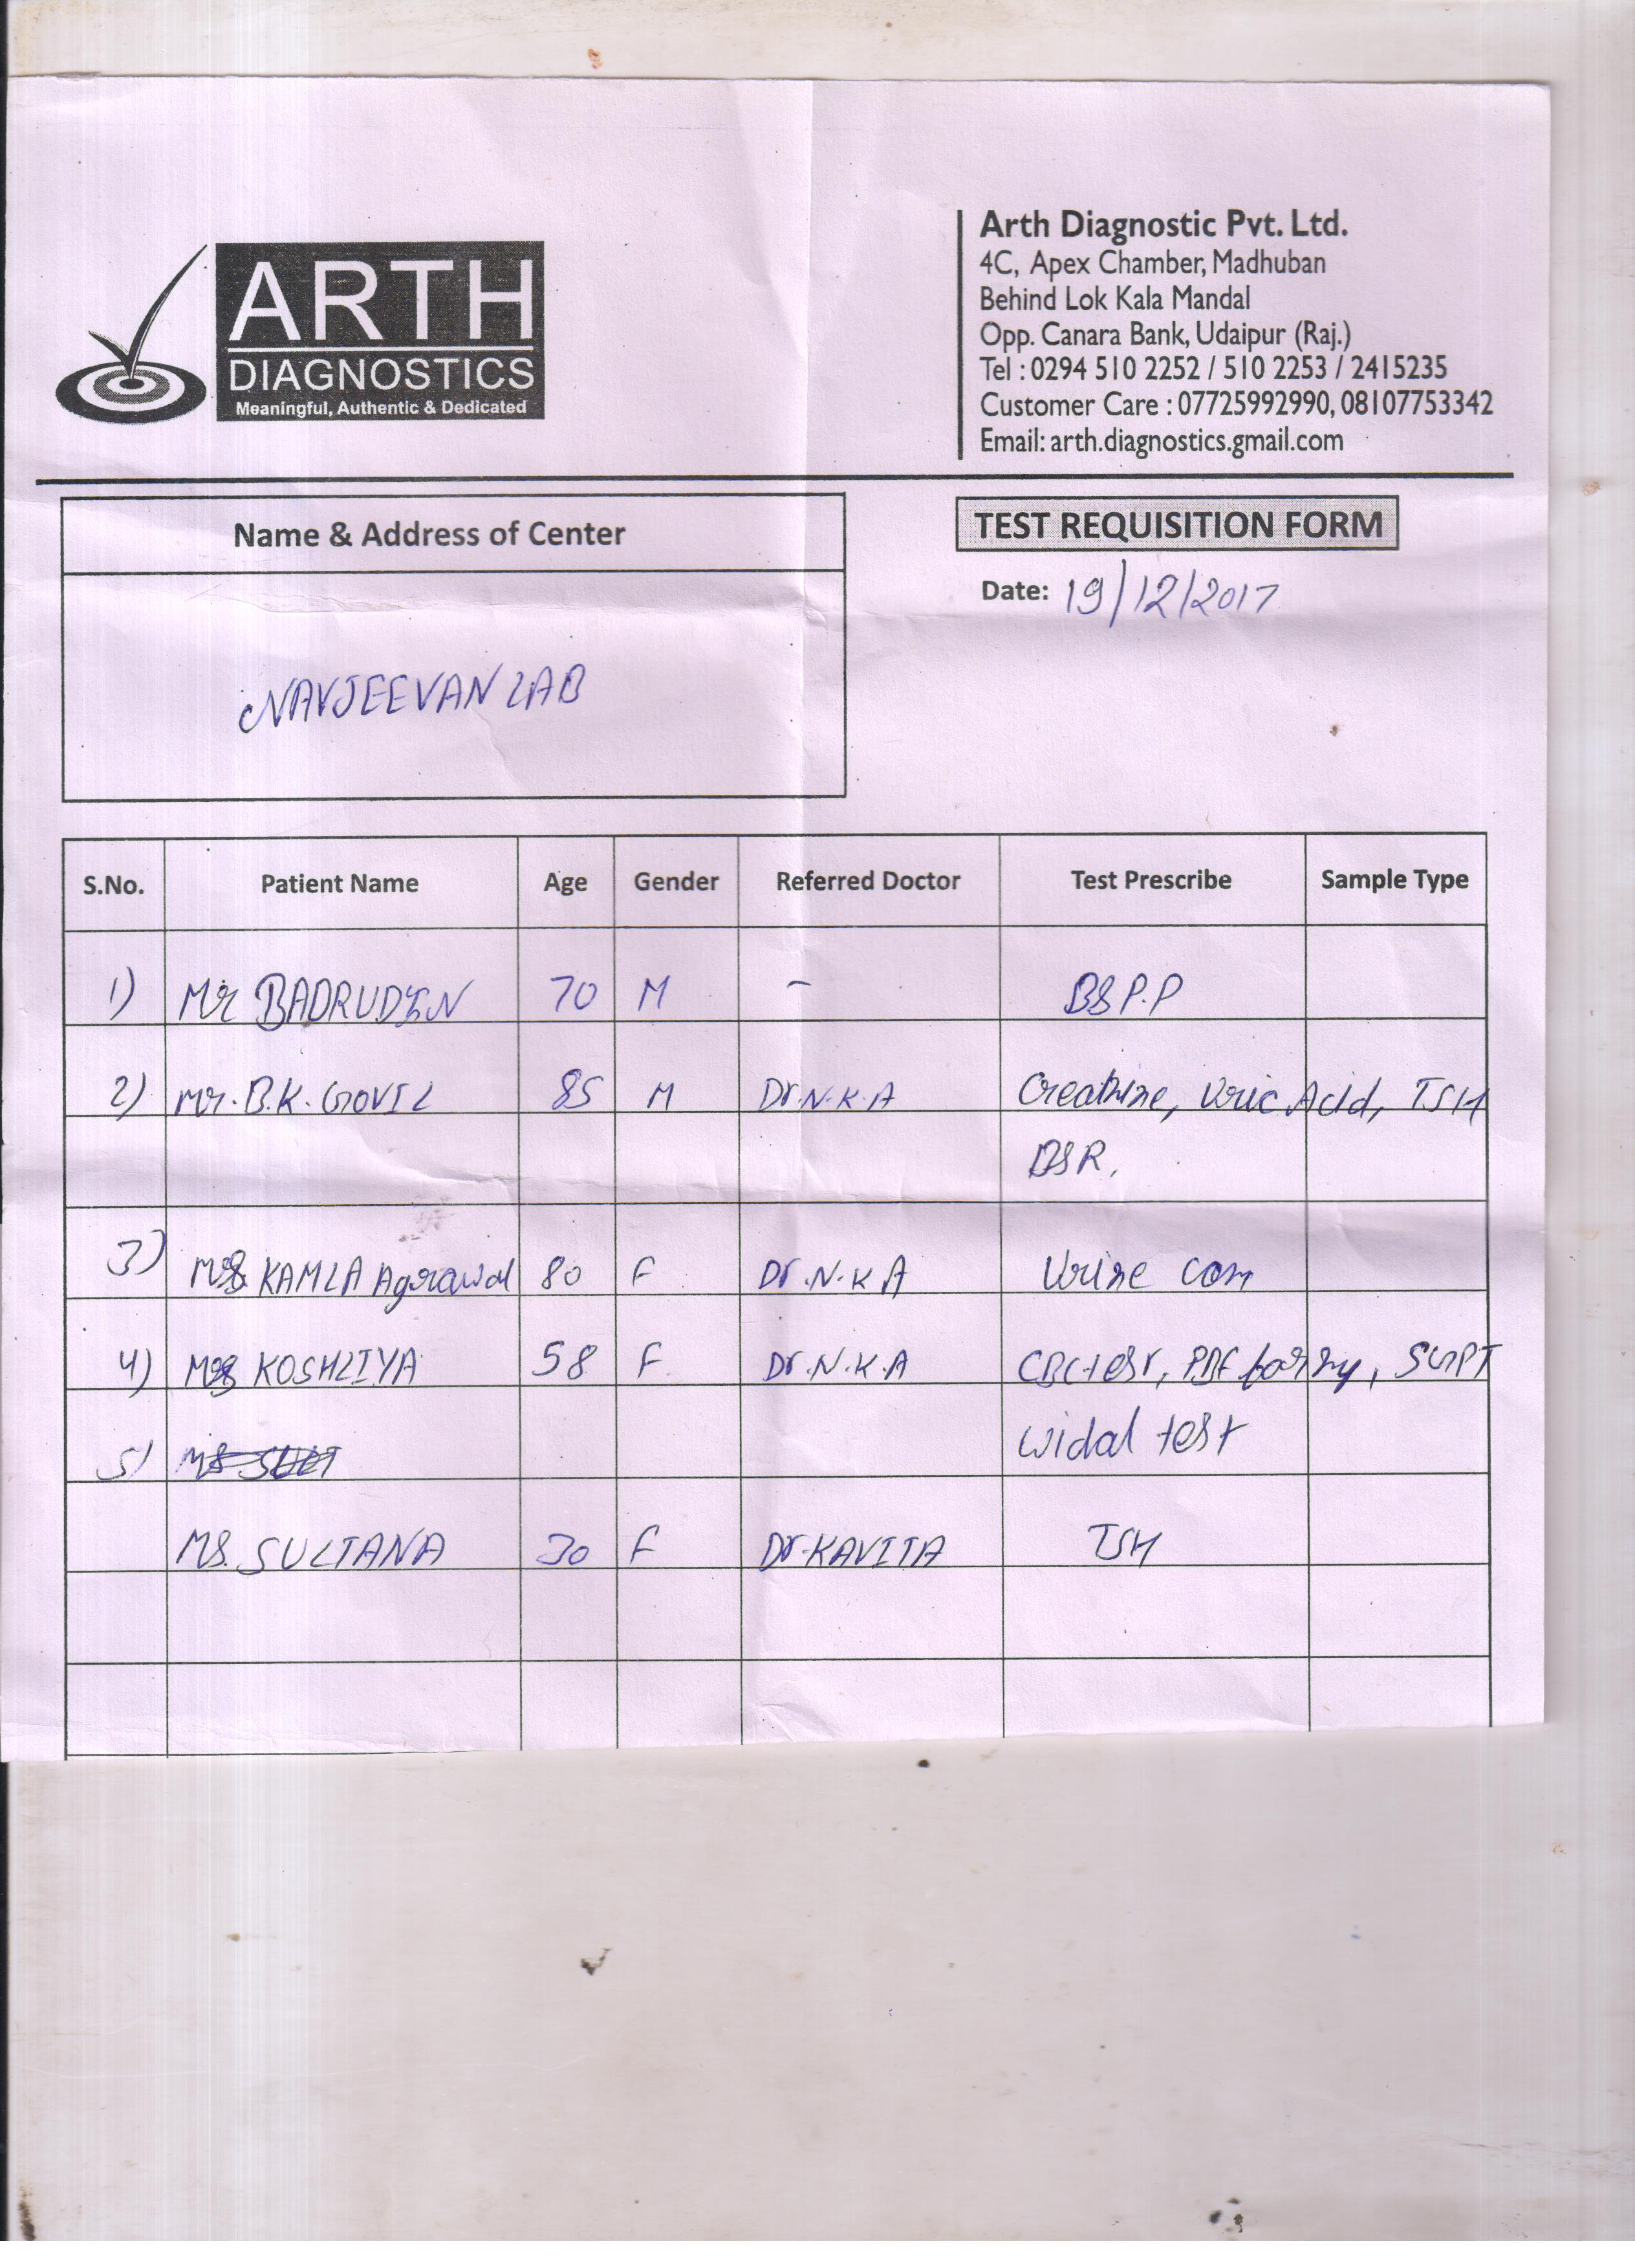 ARTH
DIAGNOSTICS
Meaningful, Authentic & Dedicated
Arth Diagnostic Pvt. Ltd.
4C, Apex Chamber, Madhuban
Behind Lok Kala Mandal
Opp. Canara Bank, Udaipur (Raj.)
Tel : 0294 510 2252 / 510 2253 / 2415235
Customer Care : 07725992990, 08107753342
Email: arth.diagnostics.gmail.com
Name & Address of Center
TEST REQUISITION FORM
Date: 19/12/2017
NAVJEEVAN LAB
S.No. Patient Name Age Gender Referred Doctor Test Prescribe Sample Type
1) Mr BADRUDIN 70 M - BSP.P
2) Mr. B.K. GOVIL 85 M Dr. N.K.A Creatnine, Uric Acid, TSH
BSR,
3) KAMLA Agrawal 80 F Dr. N.K A Urine com
4) KOSHLIYA 58 F Dr. N.K.A CBC test, PBF for mp, SGPT
5) widal test
MS. SULTANA 30 F Dr. KAVITA TSH